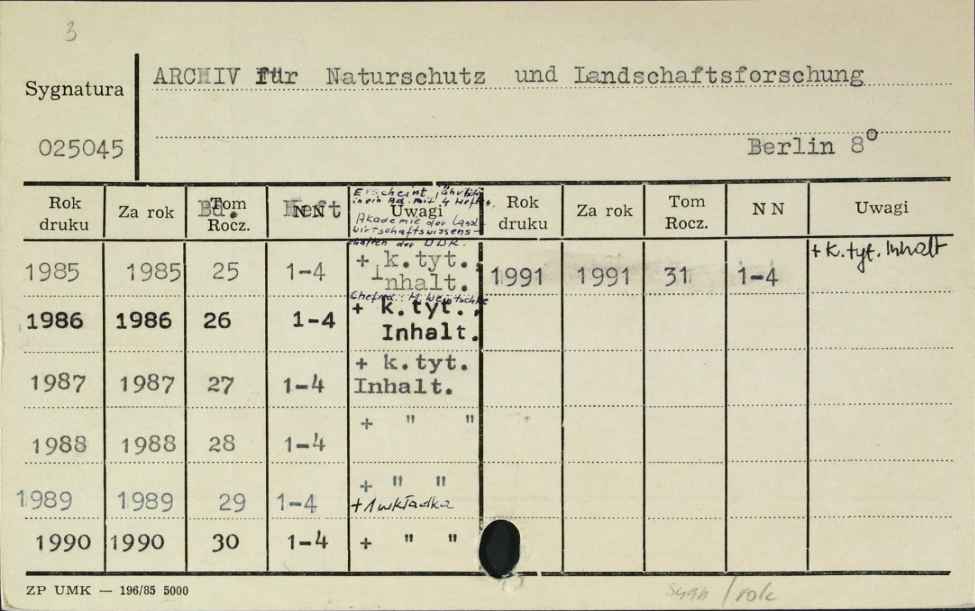 3
Sygnatura ARCHIV für Naturschutz und Landschaftsforschung
025045 Berlin 8°
Rok druku Za rok Bd. Tom Rocz. Heft NN Uwagi Rok druku Za rok Tom Rocz. NN Uwagi
Erscheint jährlich
in ein Bd. mit 4 Heften.
Akademie der Land-
wirtschaftswissens-
chaften der DDR.
1985 1985 25 1-4 + k.tyt., Inhalt. 1991 1991 31 1-4 + k.tyt. Inhalt
1986 1986 26 1-4 + k.tyt., Inhalt.
1987 1987 27 1-4 + k.tyt. Inhalt.
1988 1988 28 1-4 + " "
1989 1989 29 1-4 + " "
+ 1 wkładka
1990 1990 30 1-4 + " "
ZP UMK — 196/85 5000 sygn / rok